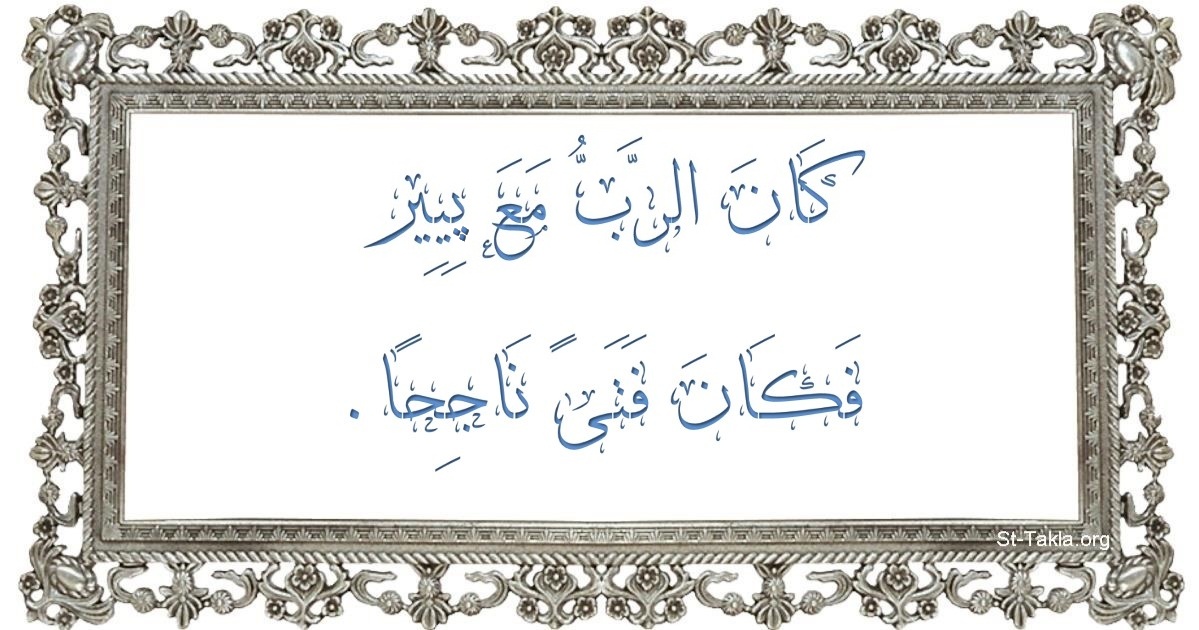 كَانَ الرَّبُّ مَعَ پِيِير
فَكَانَ فَتَىً نَاجِحًا .
St-Takla.org